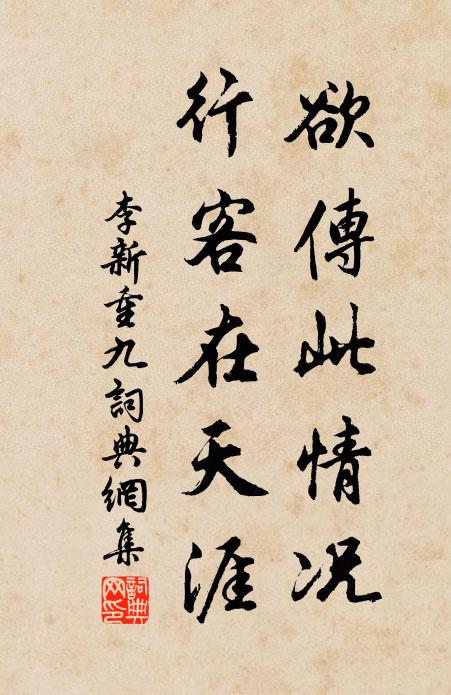 欲傳此情况
行客在天涯
李新重九詞典網集
詞典網印